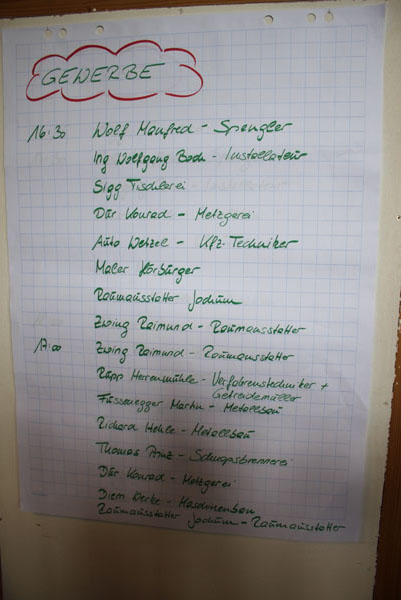 GEWERBE
16:30 Wolf Manfred - Spengler
Ing Wolfgang Bock - Installateur
Sigg Tischlerei
Dür Konrad - Metzgerei
Auto Wetzel - Kfz-Techniker
Maler Hörburger
Raumausstatter Jochum
Zwing Raimund - Raumausstatter
17:00 Zwing Raimund - Raumausstatter
Rupp Herrenmühle - Verfahrenstechniker +
Getreidemüller
Fussenegger Martin - Metallbau
Richard Hehle - Metallbau
Thomas Prinz - Schnapsbrennerei
Dür Konrad - Metzgerei
Diem Werke - Maschinenbau
Raumausstatter Jochum - Raumausstatter